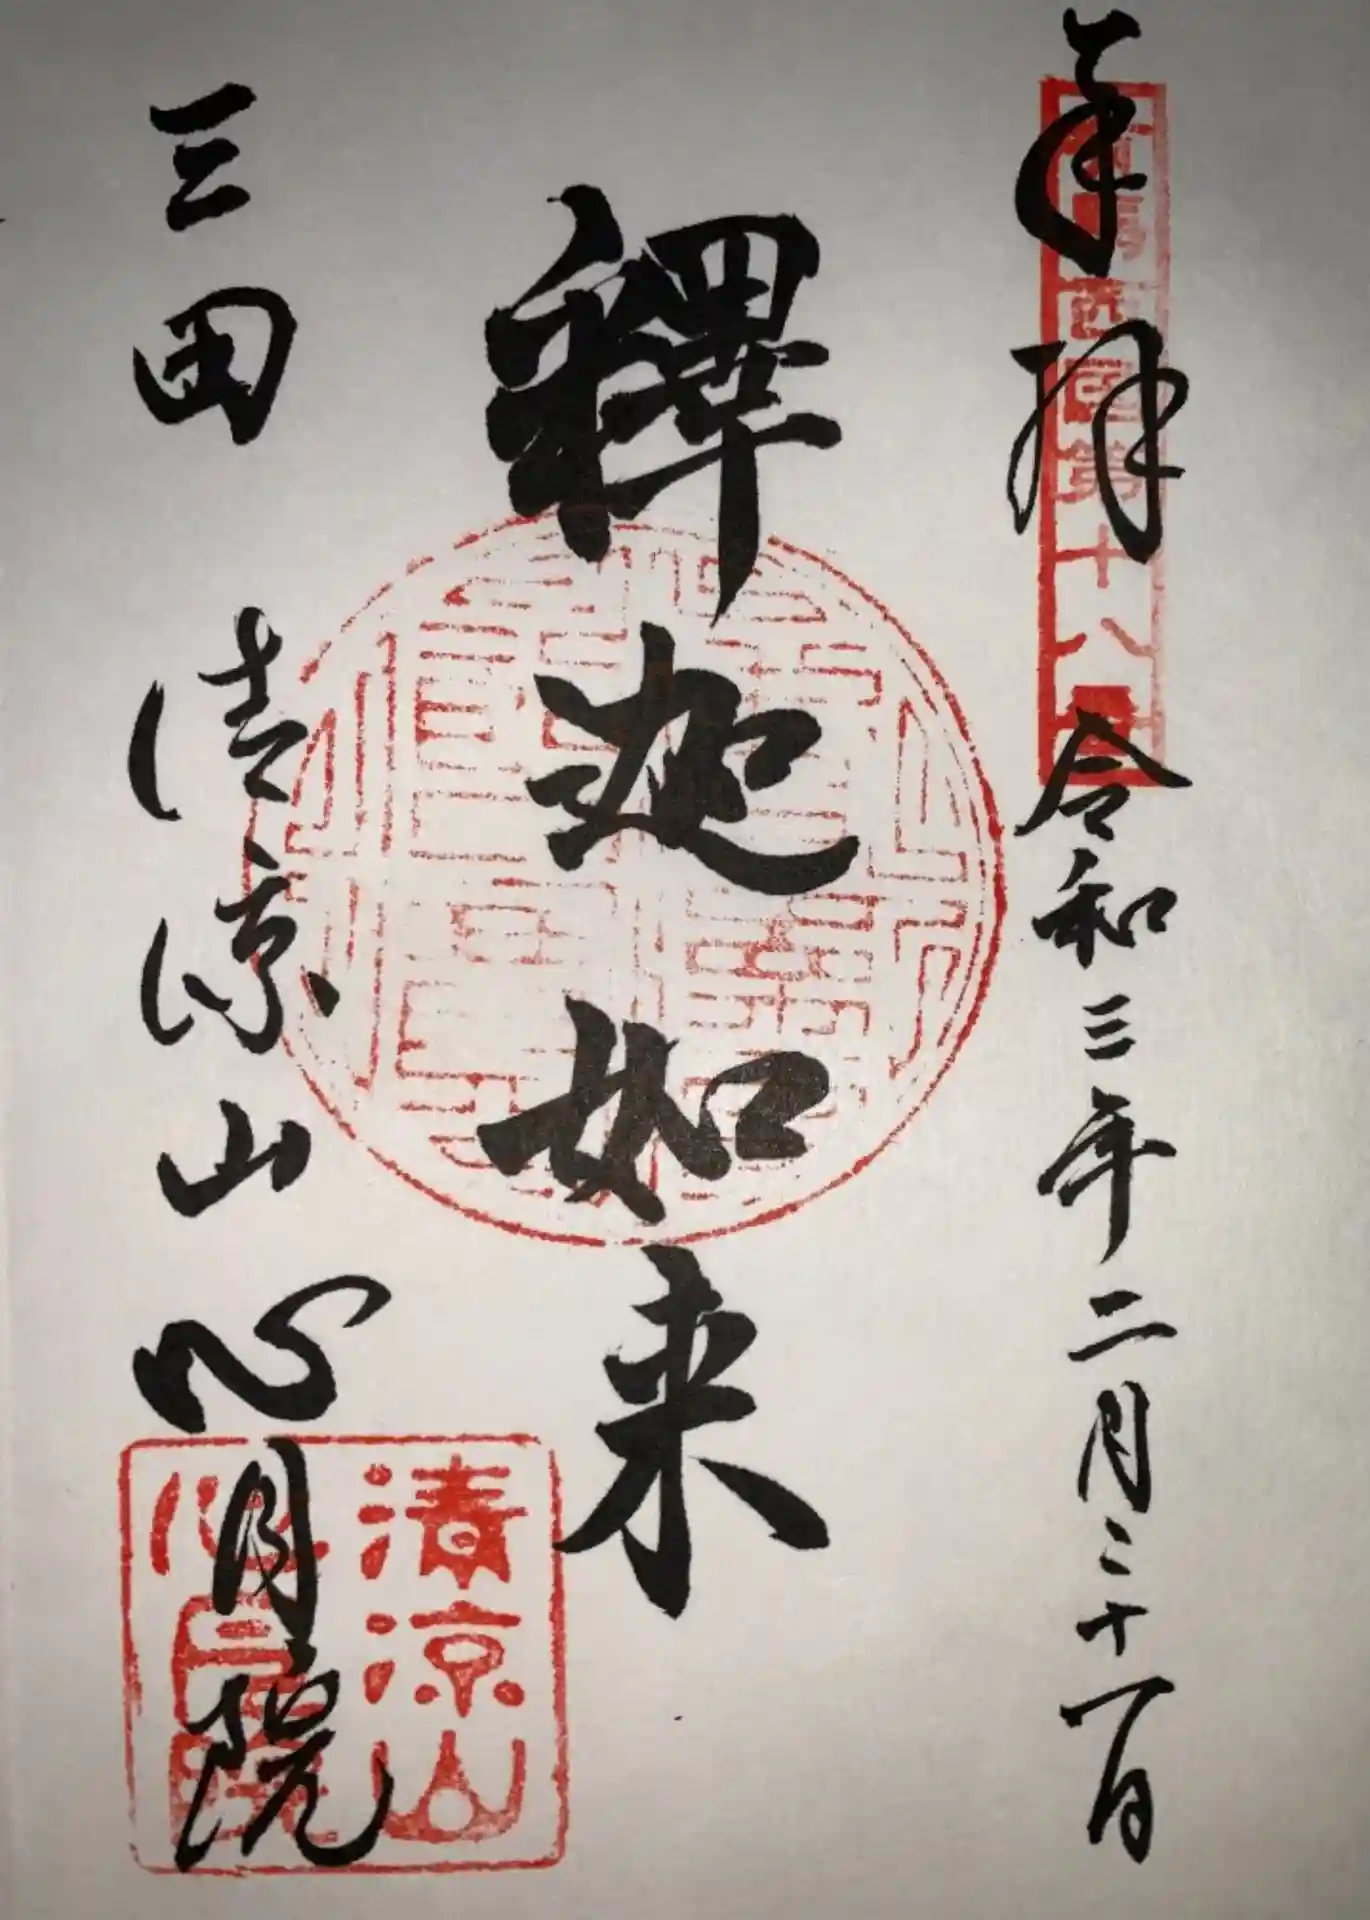 奉拝 令和三年二月二十一日
馬西國第十八番
釋迦如来
三田 清涼山 心月院
清涼山
心月院